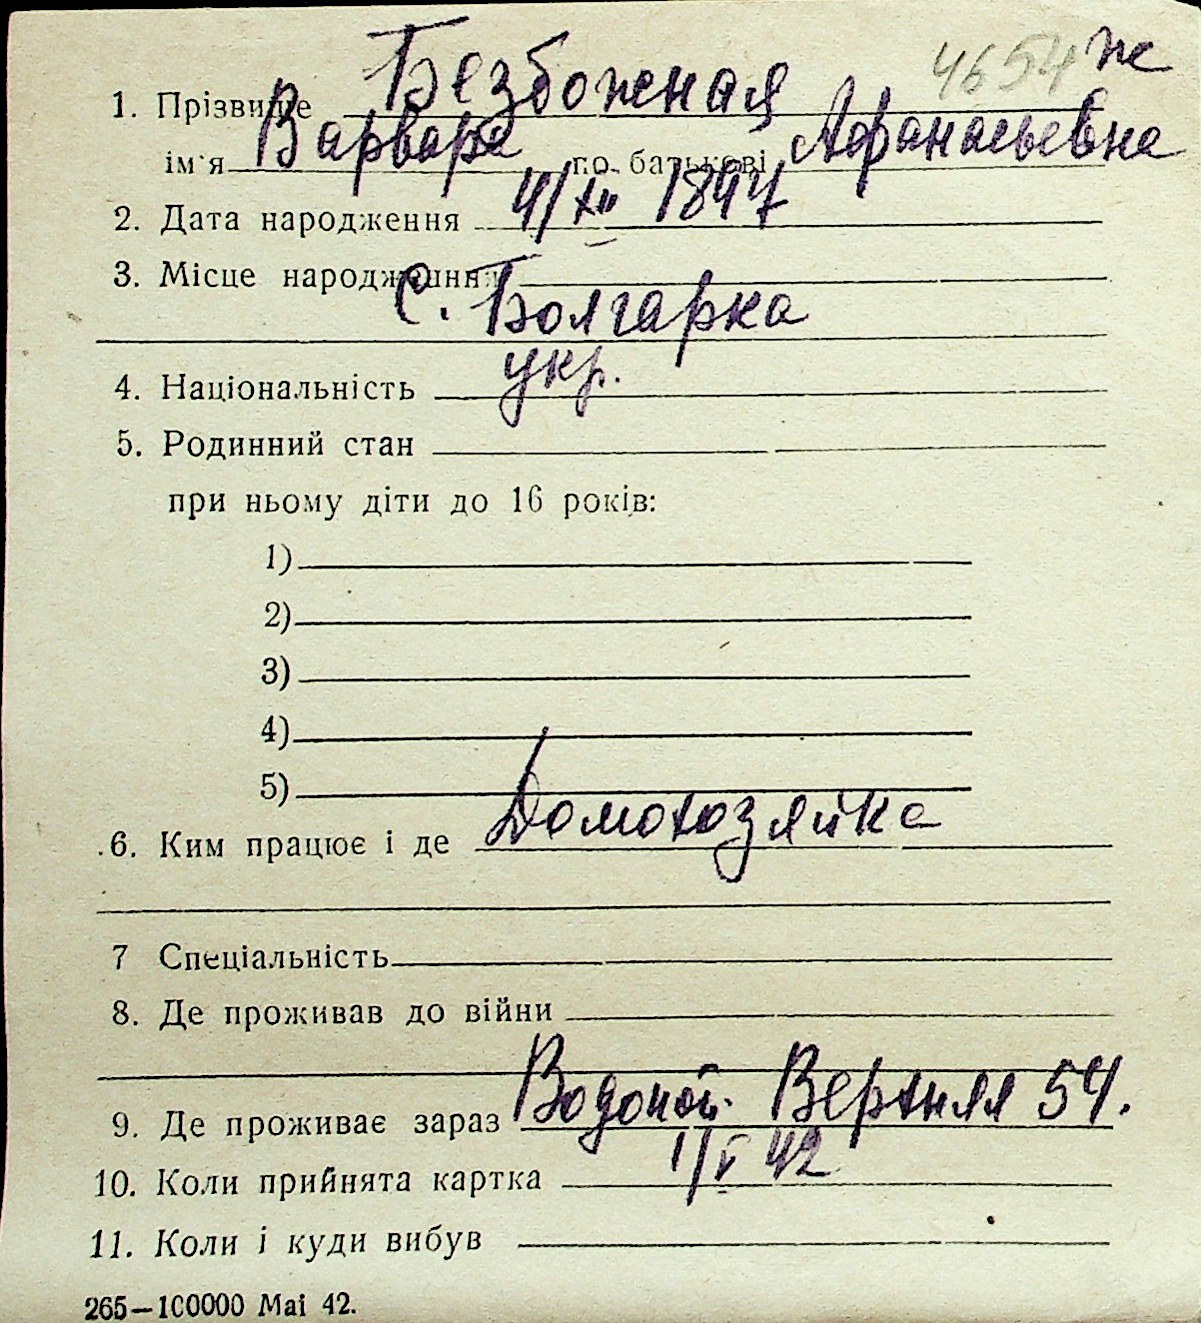 4654 ж
1. Прізвище Безбожная
ім'я Варвара по батькові Афанасьевна
2. Дата народження 4/XII 1897
3. Місце народження
С. Болгарка
4. Національність укр.
5. Родинний стан
при ньому діти до 16 років:
1)
2)
3)
4)
5)
6. Ким працює і де Домохозяйка
7 Спеціальність
8. Де проживав до війни
9. Де проживає зараз Водопой. Верхняя 54.
10. Коли прийнята картка 1/V 42
11. Коли і куди вибув
265—100000 Mai 42.